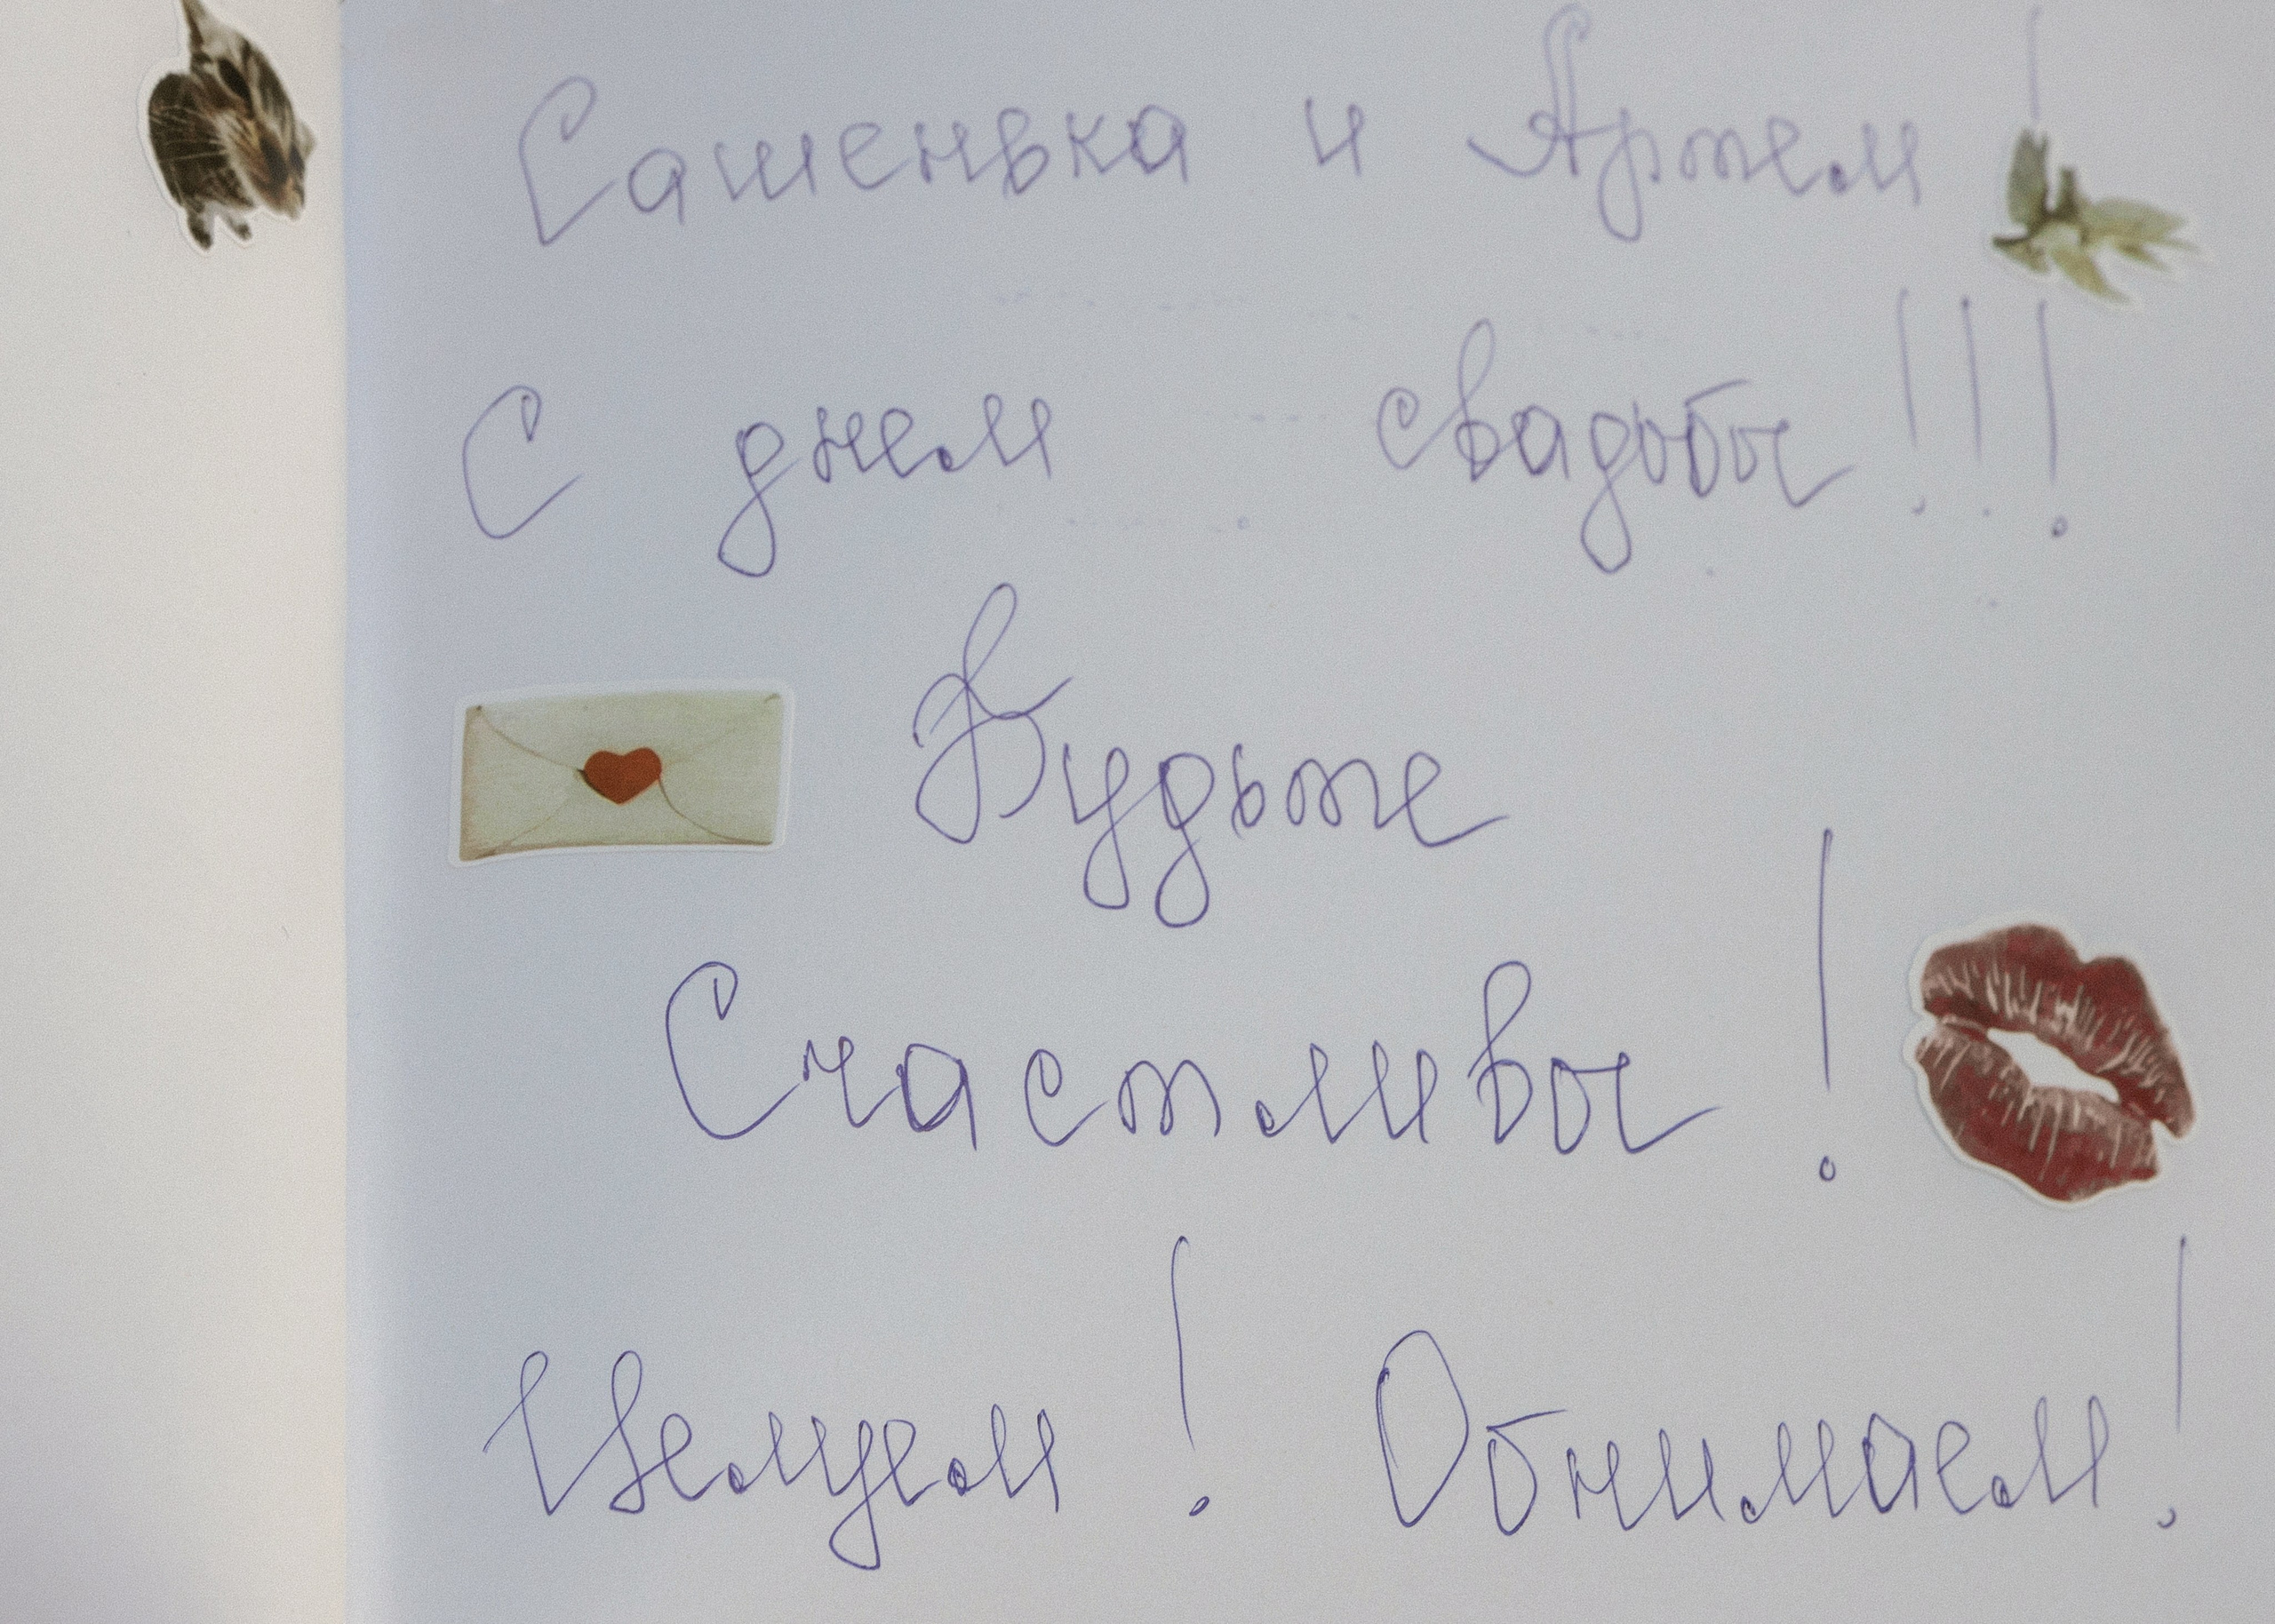 Сашенька и Артем!
С днем свадьбы!!!
Будьте
Счастливы!
Целуем! Обнимаем!